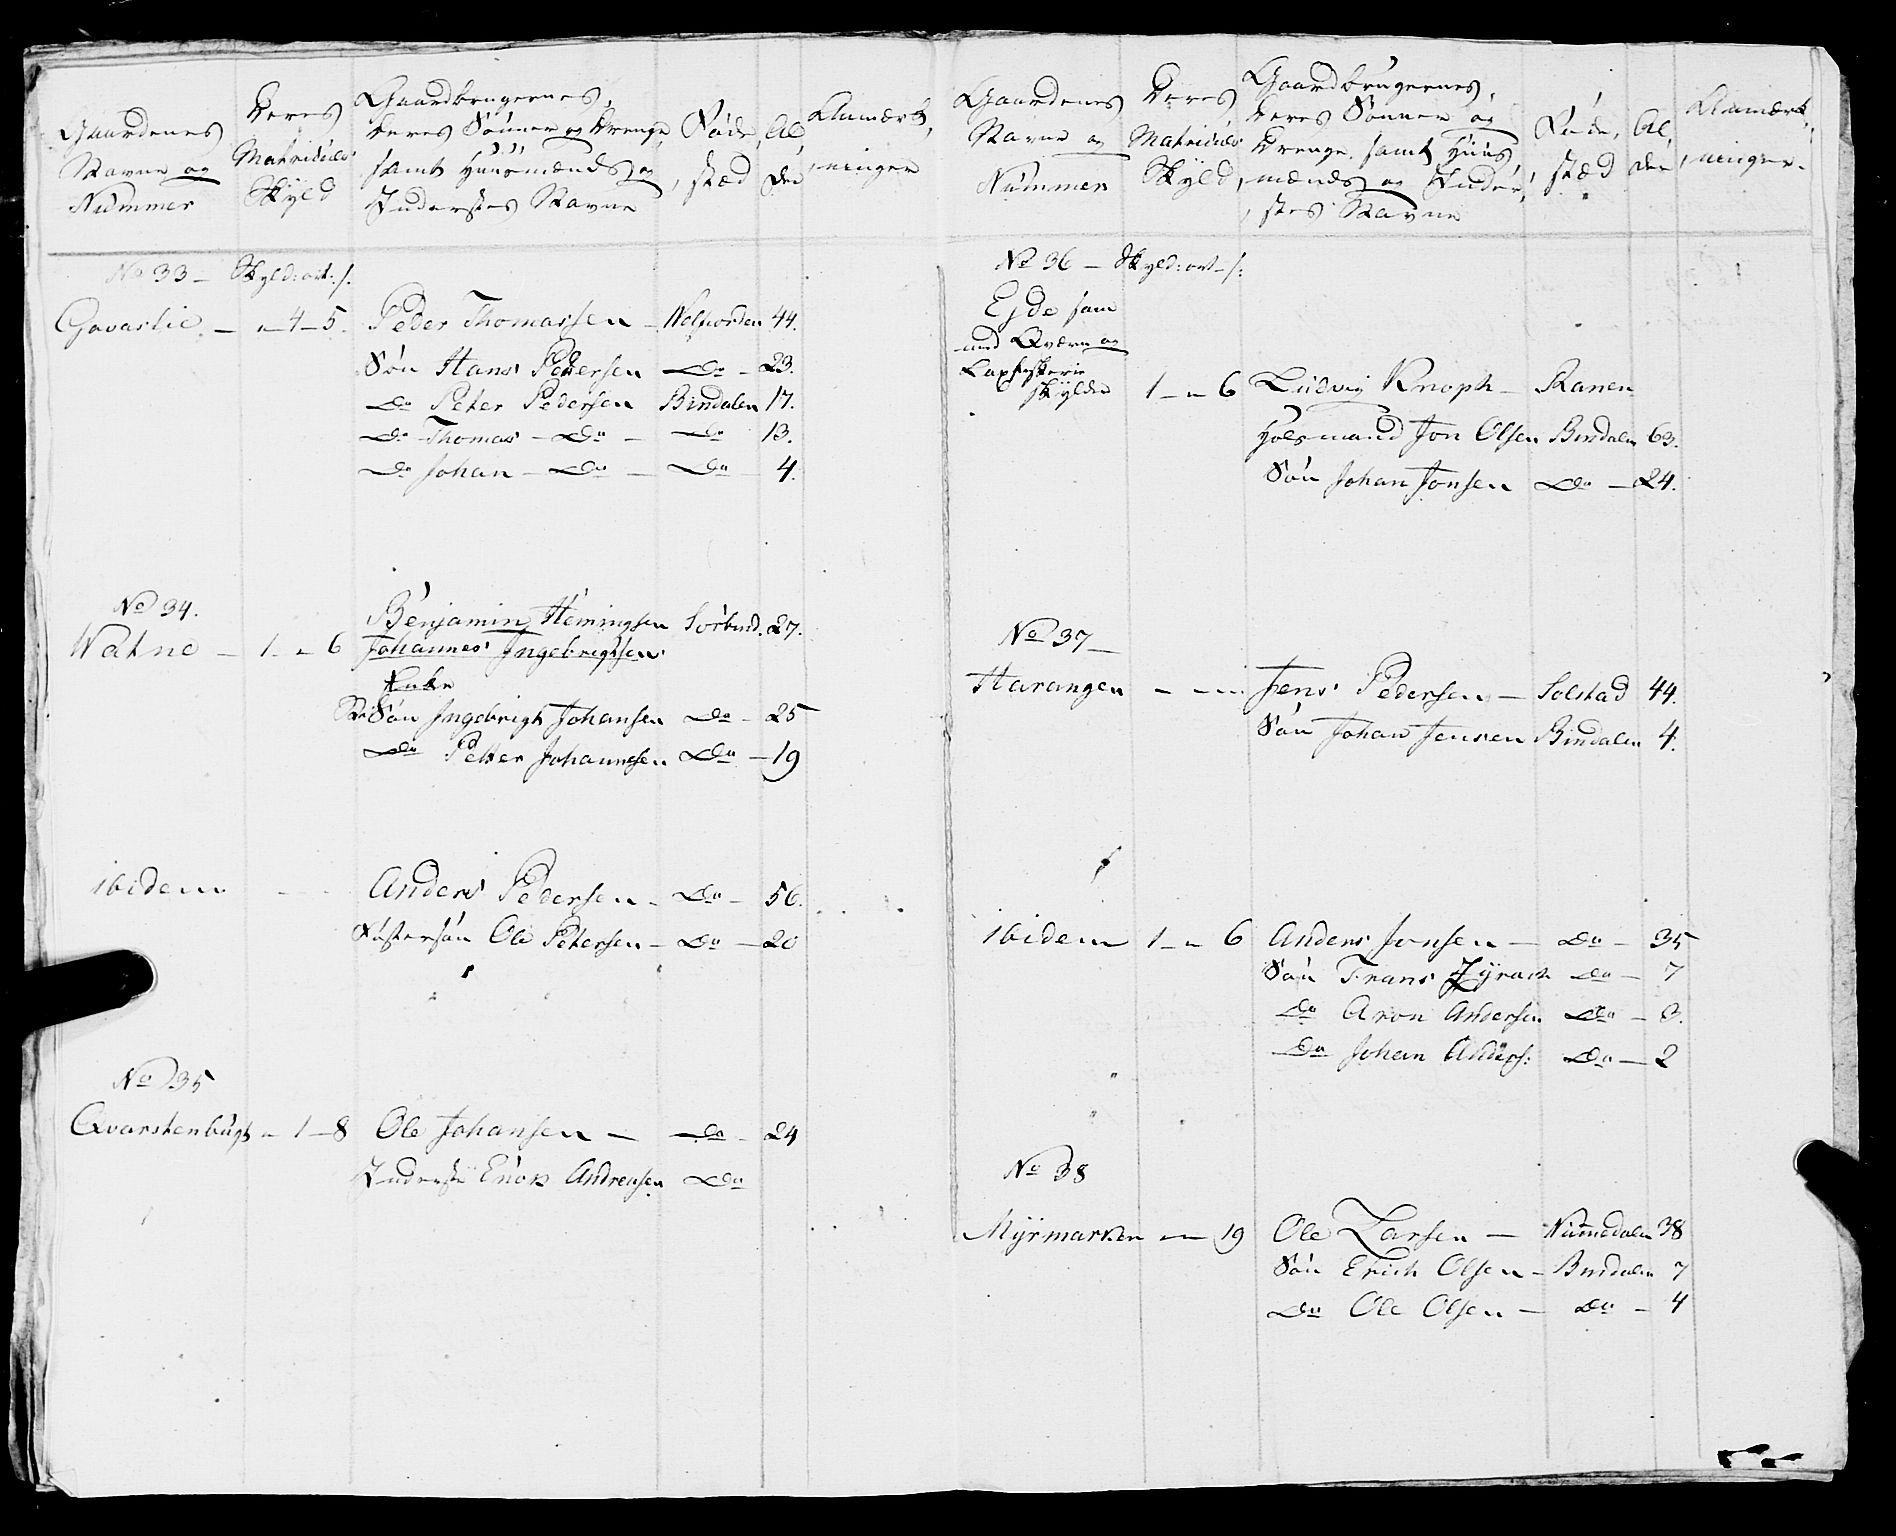 Gaardenes
Navne og
Nummer
Deres
Matriculs
Skyld
Gaardbrugernes,
deres Sønner og Drenge,
samt Huusmænds og
Inderstes Navne
Føde,
stæd
Al
der
Anmærk,
ninger
No 33 — Skyld: ort: s.
Gavaslie — " 4 — 5. Peder Thomassen — 44.
Søn Hans Pedersen — Do — 23.
Do Peter Pedersen Bindalen 17.
Do Thomas — Do — Do 13.
Do Johan — Do — Do — 4.
No 34.
Benjamin Hemingsen Sørbind. 27.
Watne — 1 — " 6 Johannes Ingebrigtsen
Enke
Søn Ingebrigt Johansen Do — 25
Do Petter Johannesen Do — 19
ibidem — Anders Pedersen — Do — 56.
Søstersøn Ole Petersen — Do — 20
No 35
Qvarstenbugt " 1 — 8 Ole Johansen — Do — 24
Inderste Enok Andreasen Do
Gaardenes
Navne og
Nummer
Deres
Matriculs
Skyld,
Gaardbrugernes,
deres Sønner og
Drenge, samt Huus,
mænds og Inder,
stes Navne
Føde,
stæd
Al
der
Anmærk,
ninger
No 36 — Skyld: ort — s:
Ejde sam
med Qværn og
Laxfiskerie
Skylder 1 — " 6 Ludvig Knoph — Ranen
Huusmand Jon Olsen Bindalen 63.
Søn Johan Jonsen Do — 24.
No 37 —
Harangen — Jens Pedersen — Solstad 44.
Søn Johan Jensen Bindalen 4.
ibidem 1 — " 6 Anders Jonsen — Do — 35
Søn Frans Zyrach Do — 7
Do Aron Andersen Do — 3.
Do Johan Anders: Do — 2
No 38
Myrmarken " — 19 Ole Larsen — Nummedalen 38
Søn Erich Olsen — Bindalen 7
Do Ole Olsen — Do — 4